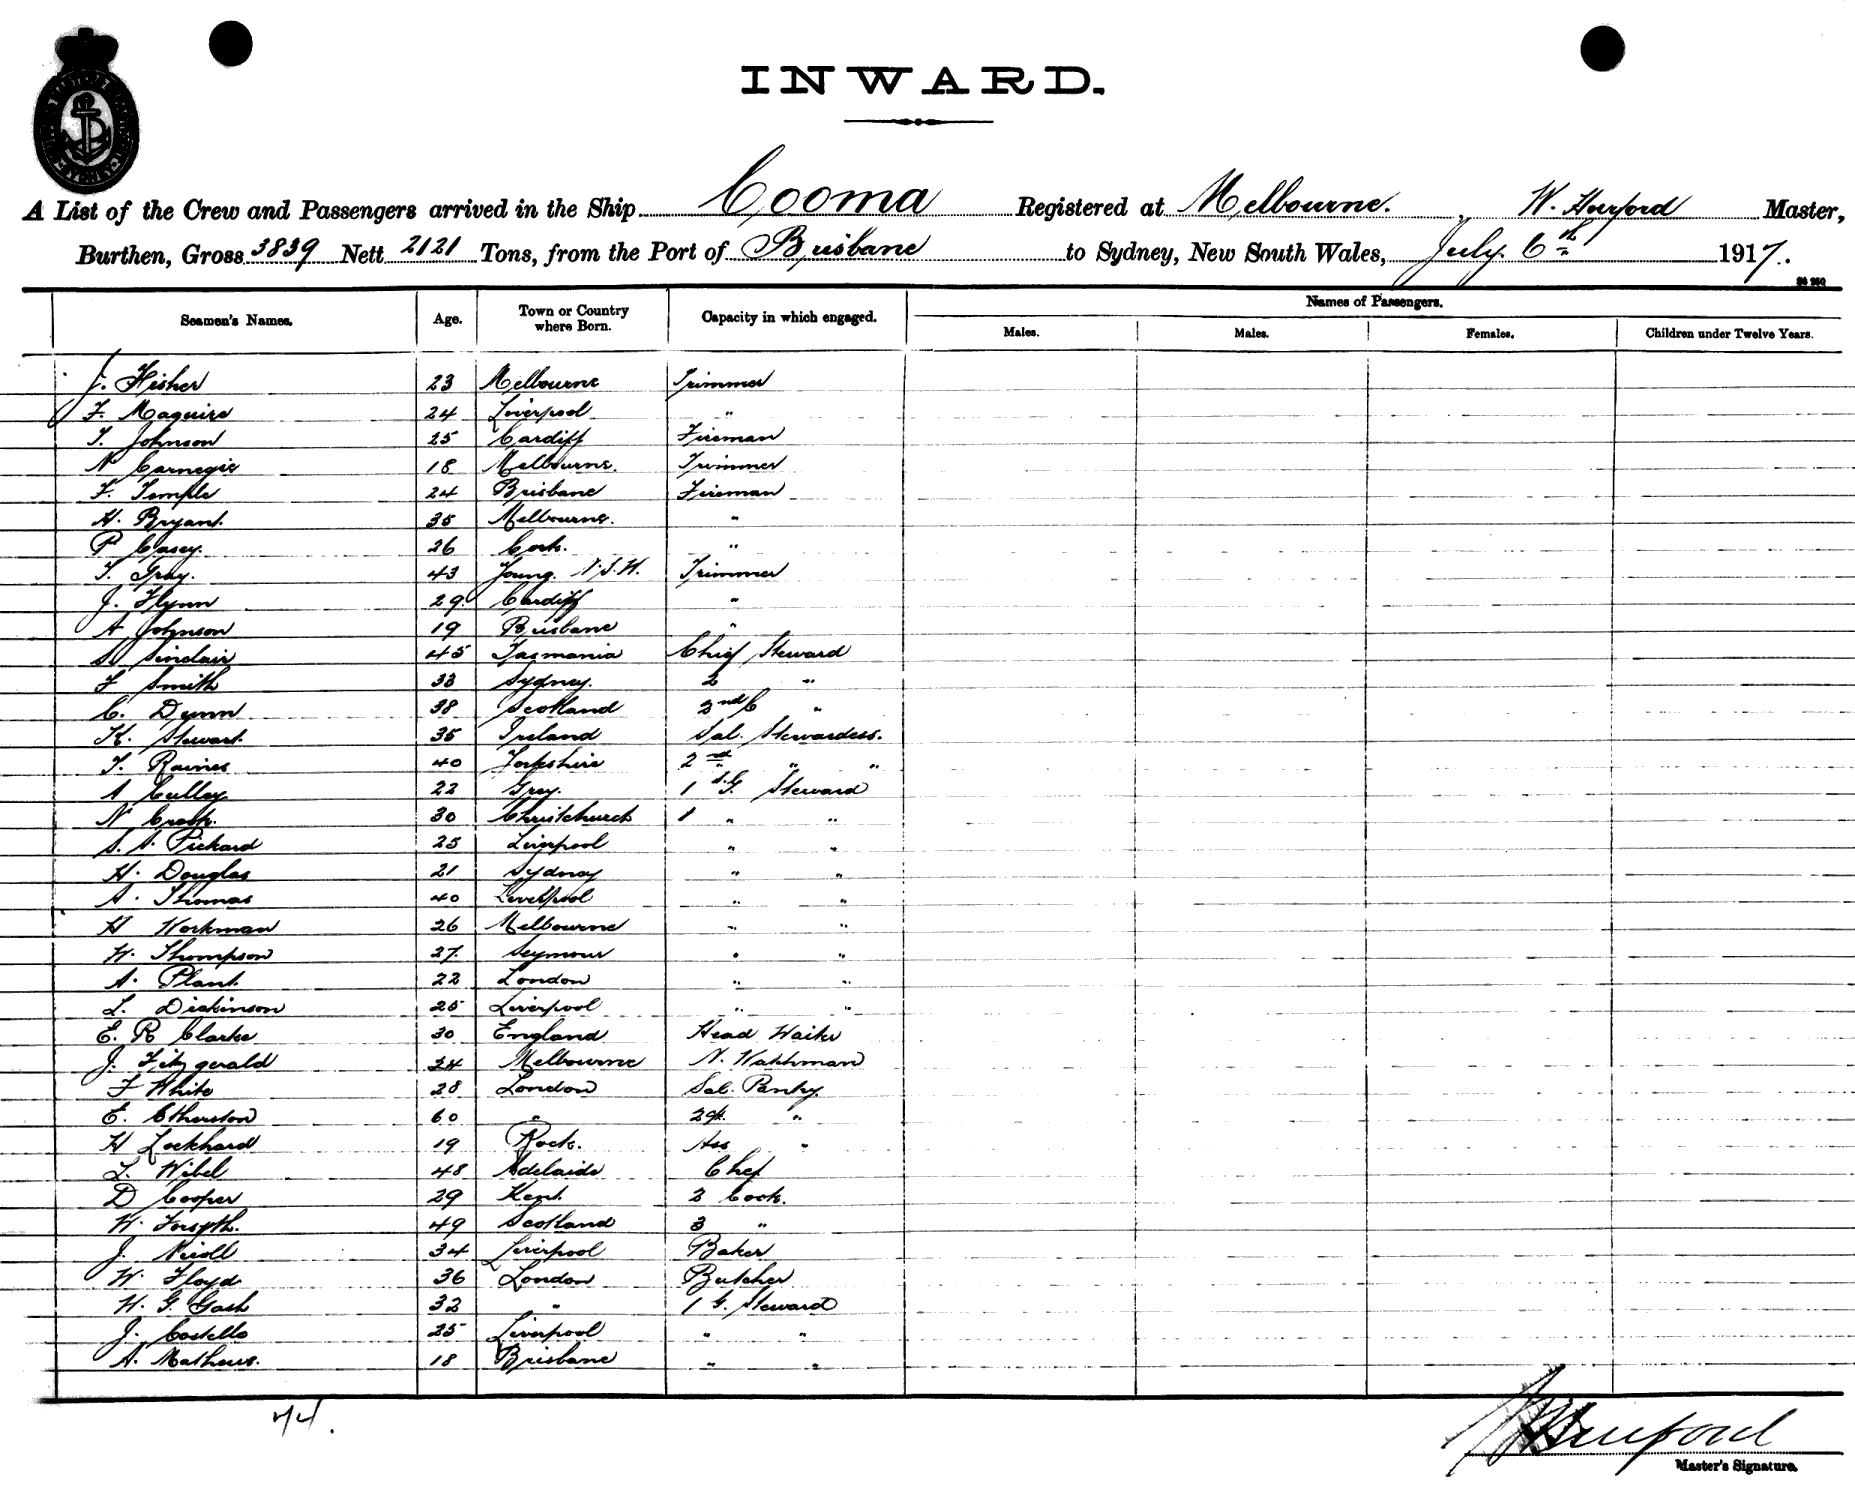 INWARD.
A List of the Crew and Passengers arrived in the Ship Cooma Registered at Melbourne. " W. Hurford Master,
Burthen, Gross 3839 Nett 2121 Tons, from the Port of Brisbane to Sydney, New South Wales, July 6th 1917.
Seamen's Names. Age. Town or Country where Born. Capacity in which engaged. Names of Passengers.
Males. Males. Females. Children under Twelve Years.
J. Fisher 23 Melbourne Trimmer
F. Maguire 24 Liverpool "
T. Johnson 25 Cardiff Fireman
N Carnegie 18 Melbourne. Trimmer
F. Temple 24 Brisbane Fireman
H. Bryant. 35 Melbourne. "
P Casey. 26 Cork. "
T. Gray. 43 Young. N.S.W. Trimmer
J. Flynn 29. Cardiff "
A Johnson 19 Brisbane "
S. Sinclair 45 Tasmania Chief Steward
F Smith 33 Sydney. 2 "
C. Dunn 38 Scotland 2nd C "
K. Stewart. 35 Ireland Sal. Stewardess.
T. Raines 40 Yorkshire 2nd " "
A Culley 22 Grey. 1 S.G. Steward
N Crook. 30 Christchurch 1 " "
S. S. Pickard 25 Liverpool " "
H. Douglas 21 Sydney " "
A. Thomas 40 Liverpool " "
H Workman 26 Melbourne " "
W. Thompson 27. Seymour " "
A. Plant. 22 London " "
L. Dickinson 25 Liverpool " "
E. R Clarke 30 England Head Waiter
J. Fitzgerald 34 Melbourne N. Watchman
F White 28 London Sal. Pantry.
E. Etherston 60 " 2nd. "
H Lockhard 19 Rock. Ass "
L. Wibel 48 Adelaide Chef
D Cooper 29 Kent. 2 Cook.
W. Forsyth. 49 Scotland 3 "
J. Nicoll 34 Liverpool Baker
W. Floyd 36 London Butcher
W. G. Gash 32 " 1 G. Steward
J. Costello 25 Liverpool " "
A. Mathews. 18 Brisbane " "
74.
W Hurford
Master's Signature.